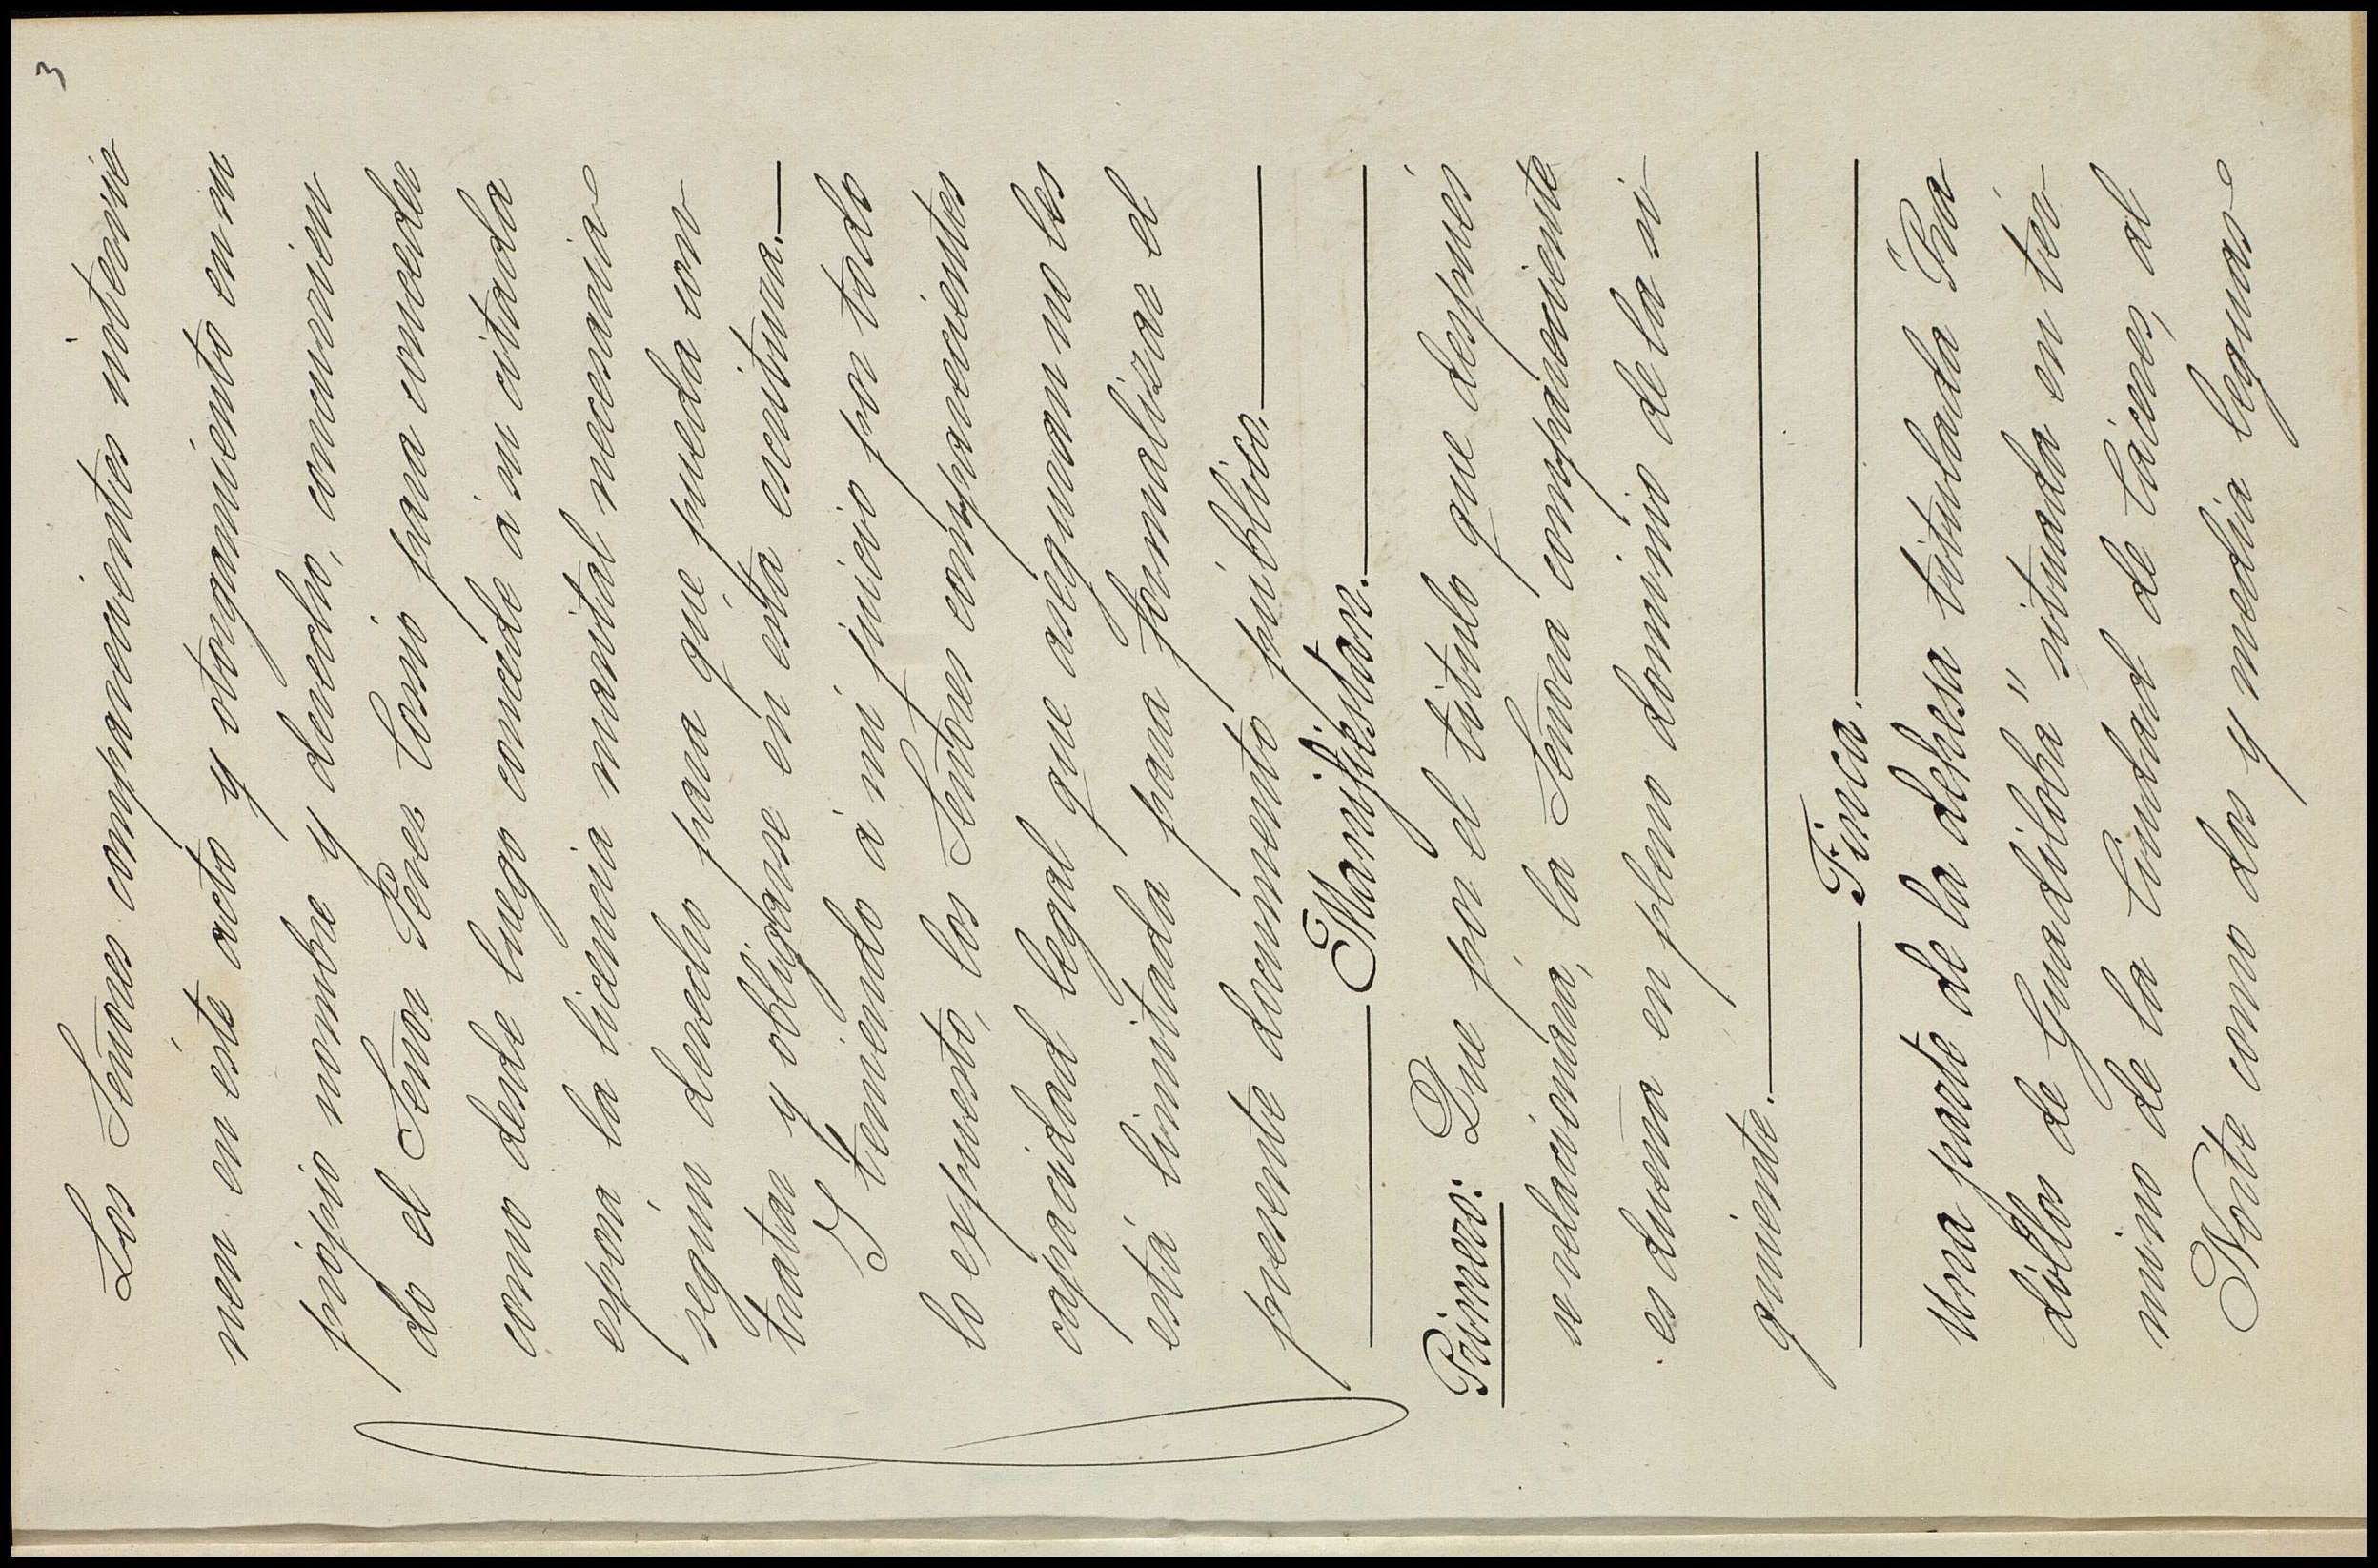 3
Los Señores comparecientes intervie
nen en éste acto y otorgamiento en su
própio nombre y derecho, concurrien
do el Señor Perez Cosio para conceder
como desde luego concede á su citada
esposa la licencia marital necesaria
segun derecho para que pueda con
tratar y obligarse en esta escritura.—
Y teniendo á mi juicio por todo
lo expuesto, los Señores comparecientes
capacidad legal que aseguran no les
está limitada para formalizar el
presente documento público.—
— Manifiestan.—
Primero: Que por el título que después
se relacionará, la Señora compareciente
es dueña en pleno dominio de la si
guiente.—
— Finca.—
Una parte de la dehesa titulada "Pra
dillos de Guadiloba" situada en tér
mino de la Ciudad de Cáceres, al
Norte como dos y media leguas